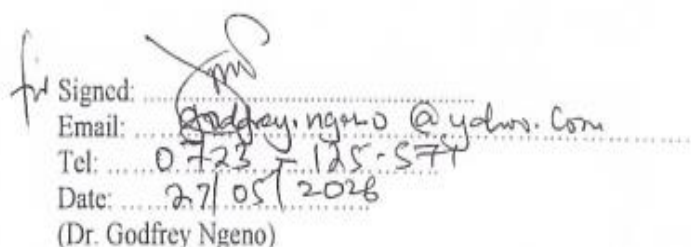 for Signed:
Email: godfrey.ngeno @ yahoo.com
Tel: 0723 - 125-574
Date: 27/05/2026
(Dr. Godfrey Ngeno)